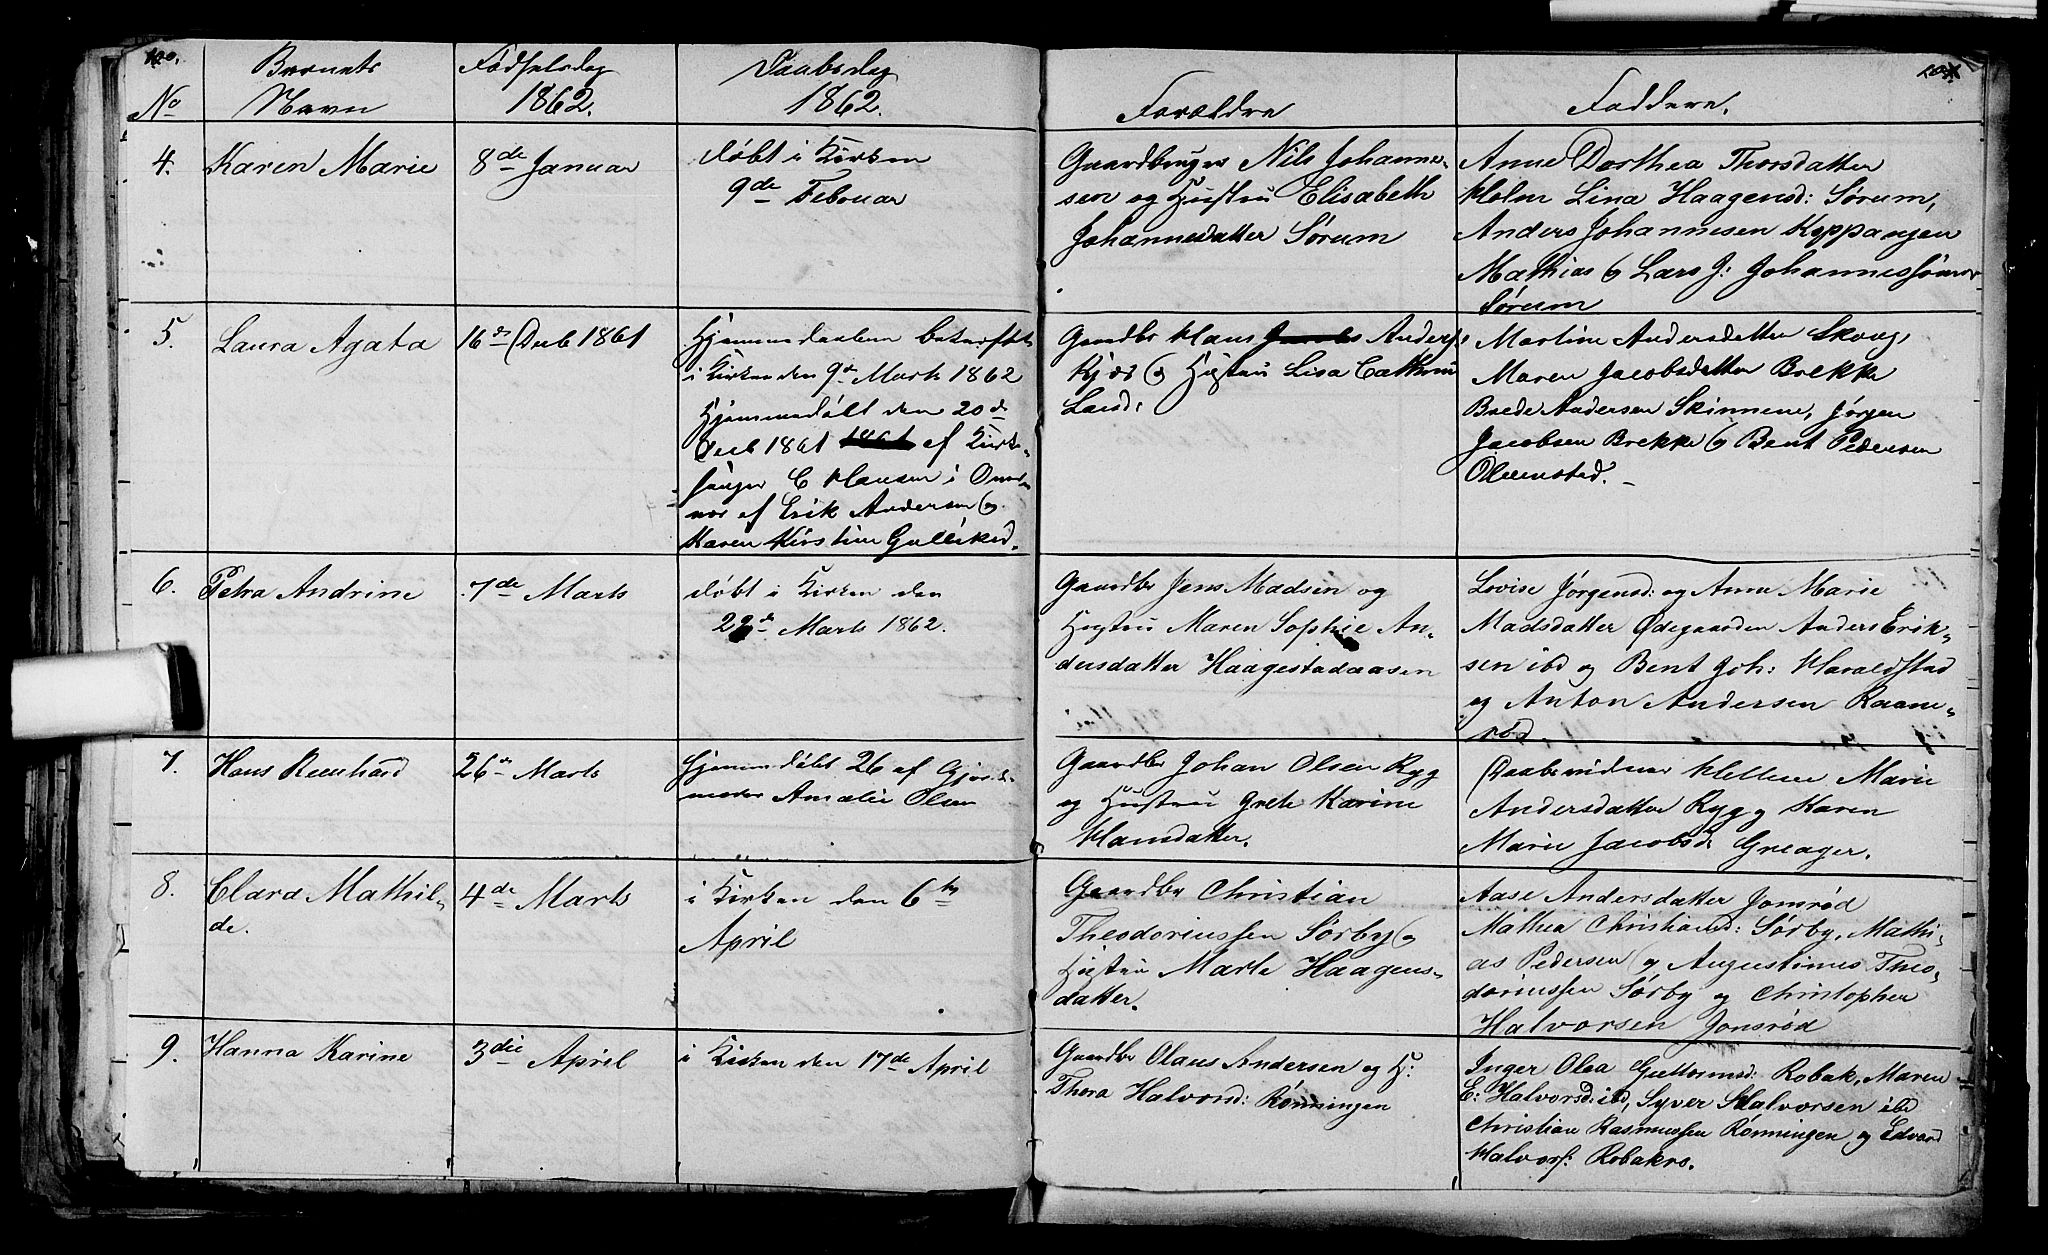 100.
No
Barnets
Navn
Fødselsdag
1862.
Daabsdag
1862.
Forældre
Faddere.
4.
Karen Marie
8de Januar
døbt i Kirken
9de Februar
Gaardbruger Nils Johanne-
sen og Hustru Elisabeth
Johannesdatter Sørum
Anne Dorthea Thorsdatter
Holm Lina Haagensd: Sørum,
Anders Johannesen Kyppangen
Mathias og Lars J: Johannessønner
Sørum
5.
Laura Agata
16de Decb 1861
Hjemmedaaben bekræftet
i Kirken den 9de Marts 1862
Hjemmedøbt den 20de
Decb 1861 1861 af Kirke-
sanger C Hansen i
af Erik Andersen og
Karen Kirstine Gulliksd.
Gaardbr Hans Anders:
Kjær og Hustru Lisa Cathrine
Larsd:
Martine Andersdatter Skoug,
Maren Jacobsdatter Brekke
Brede Andersen Skinnene, Jørgen
Jacobsen Brekke og Bent Pedersen
Olaenstad.
6.
Petra Andrine
7de Marts
døbt i Kirken den
22de Marts 1862.
Gaardbr Jens Madsen og
Hustru Maren Sophie An-
dersdatter Haagestadaasen
Lovise Jørgensd: og Anne Marie
Madsdatter Ødegaarden Anders Erik-
sen ibd og Bent Joh: Haraldstad
og Anton Andersen Raane-
rød.
7.
Hans Reenhard
26de Marts
Hjemmedøbt 26 af Gjord-
moder Amalie Olsen
Gaardbr Johan Olsen Ryg
og Hustru Grete Karine
Hansdatter.
Daabsvidner Hellene Marie
Andersdatter Ryg og Karen
Marie Jacobsd Greager.
8.
Clara Mathil-
de.
4de Marts
i Kirken den 6te
April
Gaardbr Christian
Theodoriussen Sørby og
Hustru Marte Haagens-
datter.
Aase Andersdatter Jonsrød
Mathea Christiansd: Sørby, Mathi-
as Pedersen og Augustinus Theo-
doriussen Sørby og Christopher
Halvorsen Jonsrød
9.
Hanna Karine
3die April
i Kirken den 17de April
Gaardbr Olaus Andersen og H:
Thora Halvorsd: Rønningen
Inger Olea Guttormsd: Robak, Maren
E: Halvorsd: ibd, Syver Halvorsen ibd
Christian Rasmussen Rønningen, og Edvard
Halvors: Robakro.